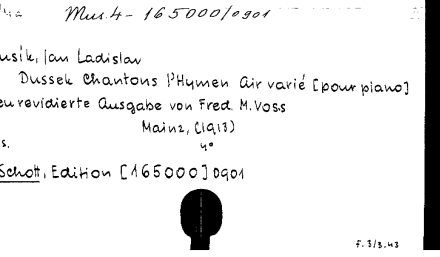 Mus. 4 - 165000/0901
usík, Jan Ladislav
Dussek Chantons l'Hymen Air varié [pour piano]
eu revidierte Ausgabe von Fred. M. Voss
Mainz, (1913)
s. 4°
Schott, Edition [165000] 0901
F. 3/3.43